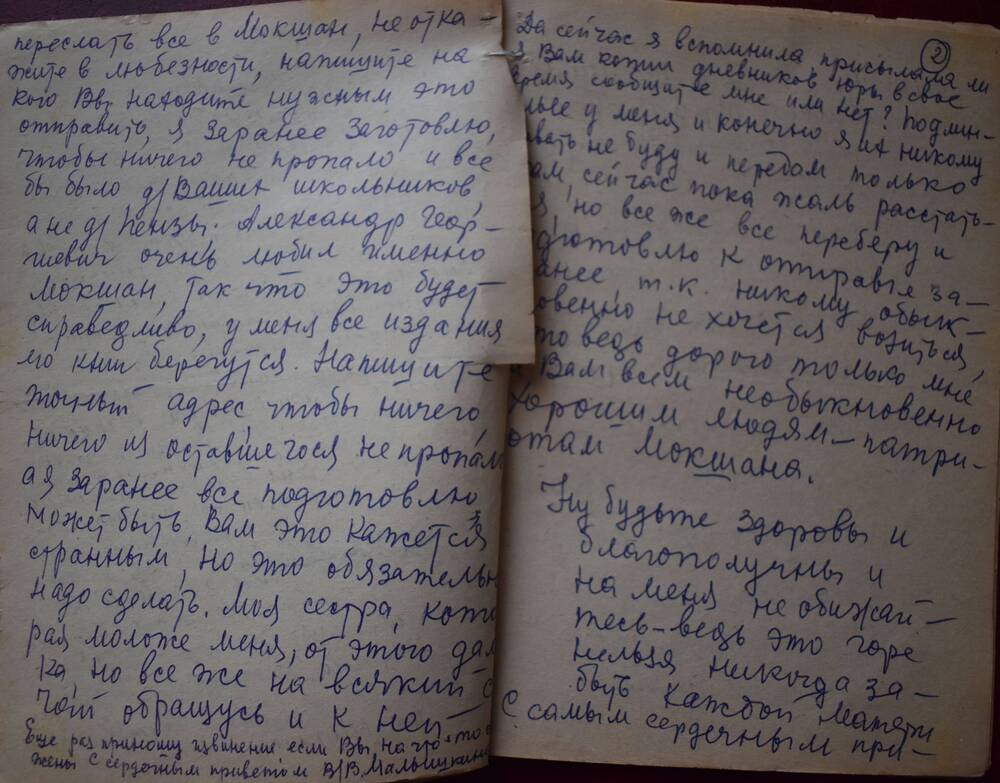 переслать все в Мокшан, не отка-
жите в любезности, напишите на
кого Вы находите нужным это
отправить, я заранее заготовлю,
чтобы ничего не пропало и все
бы было д/Ваших школьников,
а не д/Пензы. Александр Геор-
гиевич очень любил именно
Мокшан, так что это будет
справедливо, у меня все издания
его книг берегутся. Напишите
точный адрес, чтобы ничего,
ничего из оставшегося не пропало
а я заранее все подготовлю
Может быть, Вам это кажется
странным, но это обязательн
надо сделать. Моя сестра, кото
рая моложе меня, от этого дал
ка, но все же на всякий с
чай обращусь и к ней
Еще раз приношу извинение если Вы на что-то
жены С сердечным приветом В/В. Малышкина
2
Да сейчас я вспомнила присылала ли
я Вам копии дневников Юры в свое
время сообщите мне или нет? Подлин-
ные у меня и конечно я их никому
давать не буду и передам только
Вам, сейчас пока жаль расстать-
я, но все же все переберу и
дготовлю к отправке за-
анее т.к. никому обык-
овенно не хочется возиться,
то ведь дорого только мне
и Вам всем необыкновенно
хорошим людям - патри-
отам Мокшана.
Ну будьте здоровы и
благополучны и
на меня не обижай-
тесь - ведь это горе
нельзя никогда за-
быть каждой матери
С самым сердечным при-